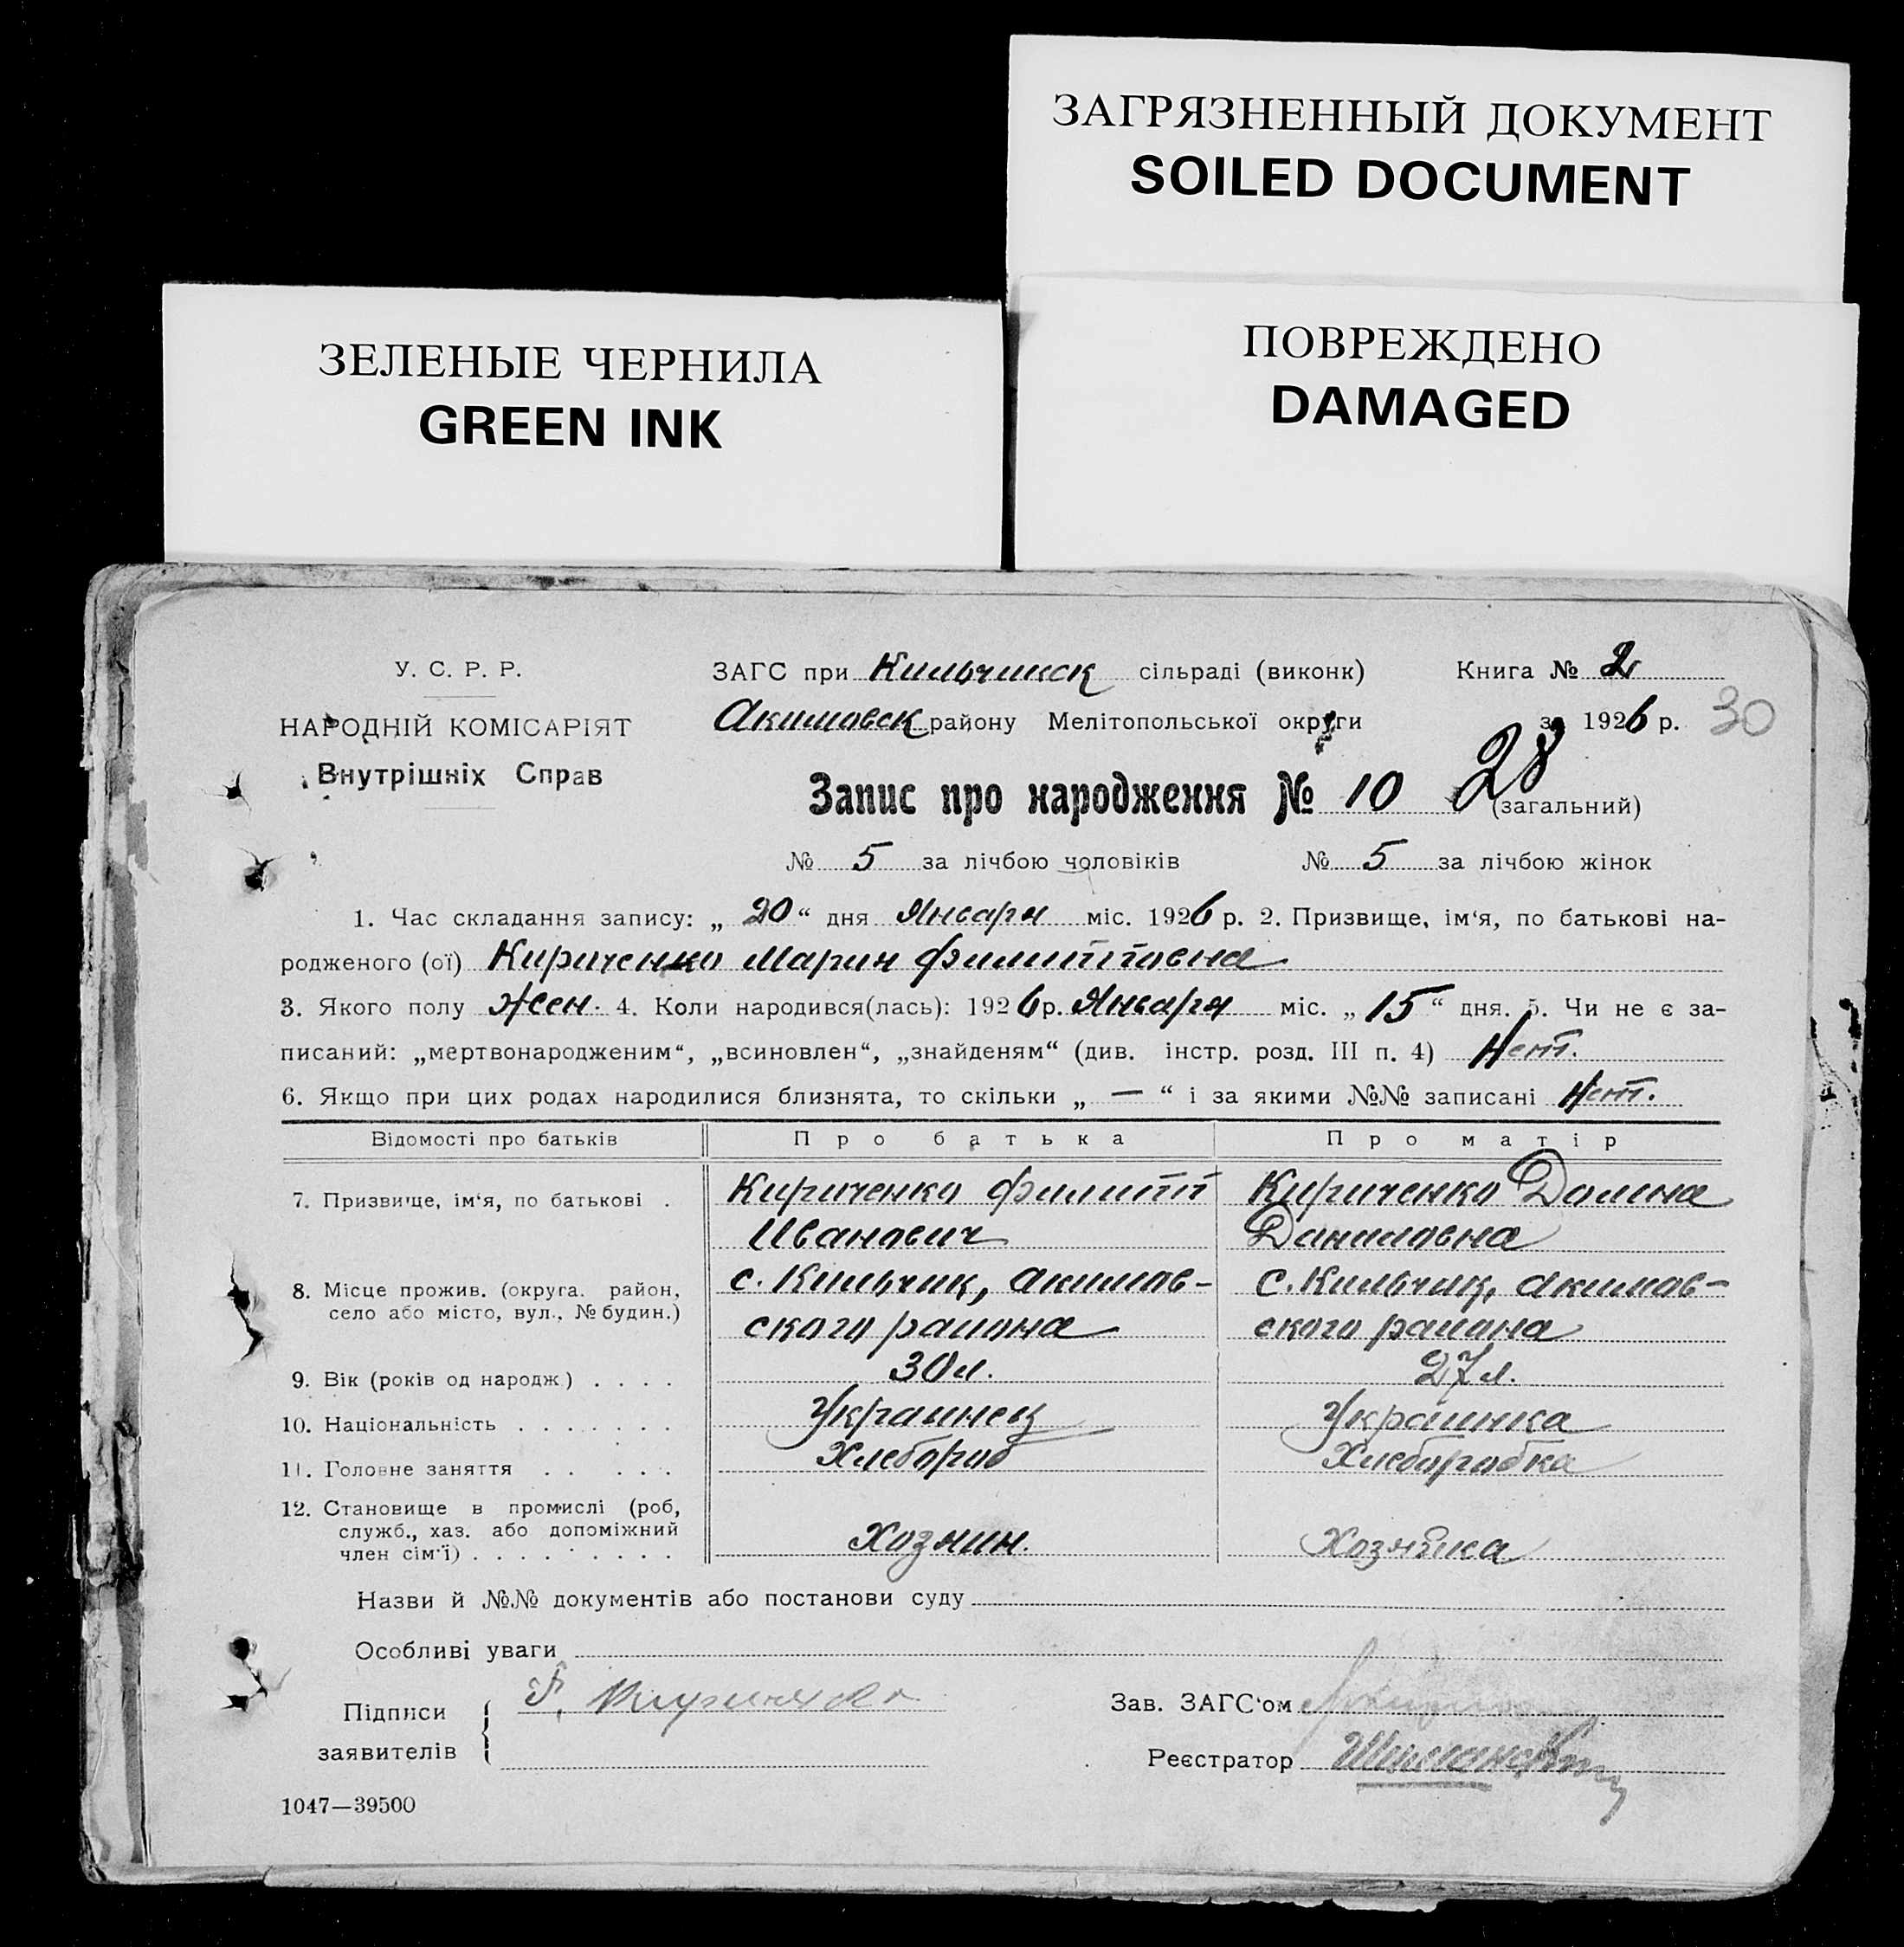 ЗАГРЯЗНЕННЫЙ ДОКУМЕНТ
SOILED DOCUMENT
ЗЕЛЕНЫЕ ЧЕРНИЛА
GREEN INK
ПОВРЕЖДЕНО
DAMAGED
У. С. Р. Р.
НАРОДНІЙ КОМІСАРІЯТ
Внутрішніх Справ
ЗАГС при Кильчикск сільраді (виконк) Книга № 2
Акимовск району Мелітопольської округи за 1926 р. 30
28
Запис про народження № 10 (загальний)
№ 5 за лічбою чоловіків № 5 за лічбою жінок
1. Час складання запису: „ 20 “ дня Января міс. 1926 р. 2. Призвище, ім‘я, по батькові на-
родженого (ої) Кириченко Мария Филипповна
3. Якого полу жен. 4. Коли народився(лась): 1926 р. Января міс. „ 15 “ дня. 5. Чи не є за-
писаний: „мертвонародженим“, „всиновлен“, „знайденям“ (див. інстр. розд. III п. 4) Нет.
6. Якщо при цих родах народилися близнята, то скільки „ — “ і за якими №№ записані Нет.
Відомості про батьків Про батька Про матір
7. Призвище, ім‘я, по батькові . Кириченко Филипп Кириченко Домна
Иванович Даниловна
8. Місце прожив. (округа. район, с. Кильчик, Акимов- с. Кильчик, Акимов-
село або місто, вул., № будин.) ского района ского района
9. Вік (років од народж) . . . . 30 л. 27 л.
10. Національність . . . . . . . Украинец Украинка
11. Головне заняття . . . . . Хлебороб Хлеборобка
12. Становище в промислі (роб,
служб., хаз. або допоміжний Хозяин. Хозяйка
член сім‘ї) . . . . . . . . .
Назви й №№ документів або постанови суду
Особливі уваги
Підписи Ф. Кириченко Зав. ЗАГС‘ом
заявителів Реєстратор
1047—39500